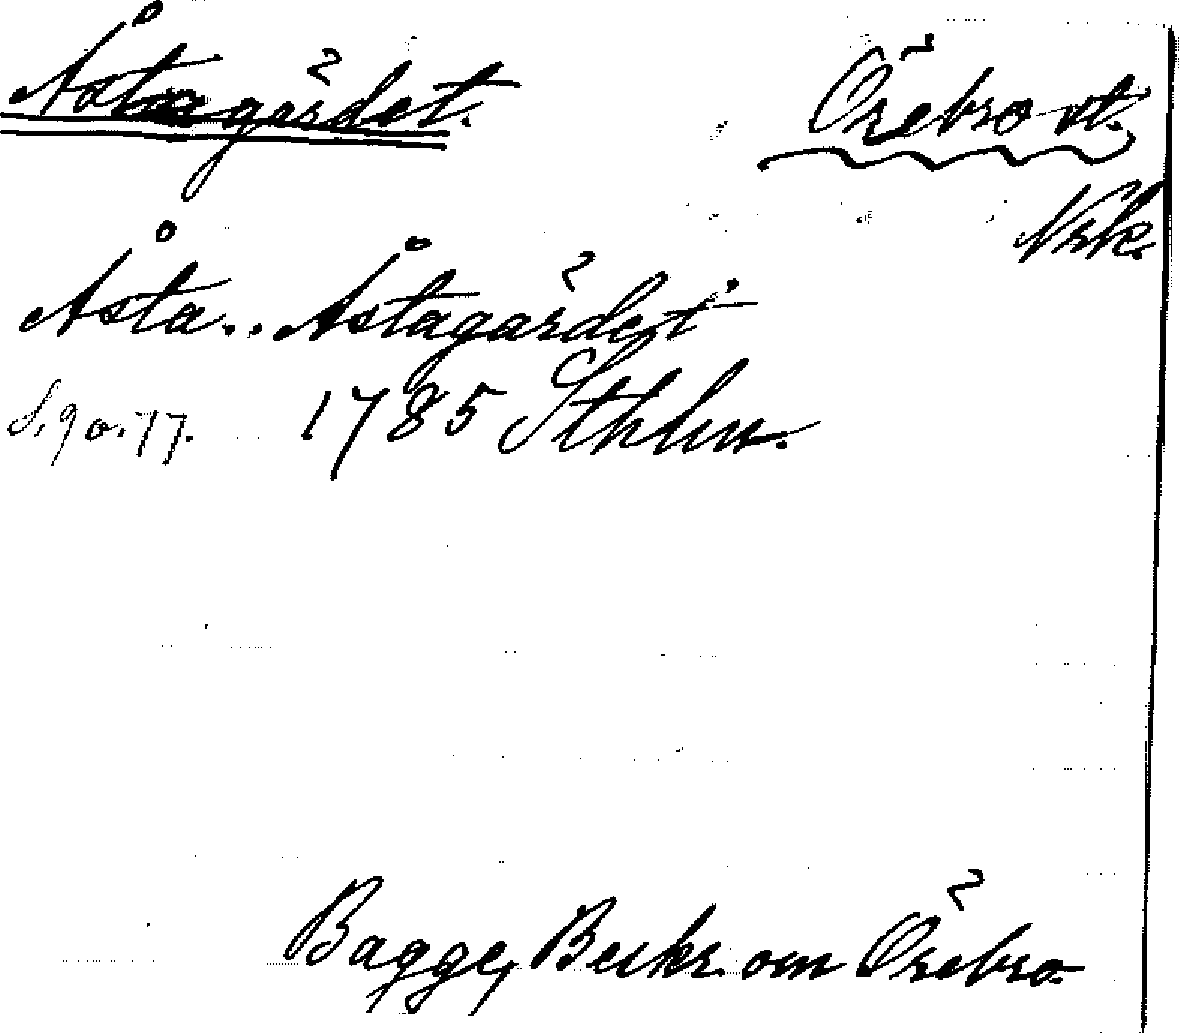 Åstagärdet.
Örebro st.
Nrk.
Åsta.. Åstagärdet
S. 90. 77. 1785 Sthlm.
Bagge, Beskr. om Örebro.